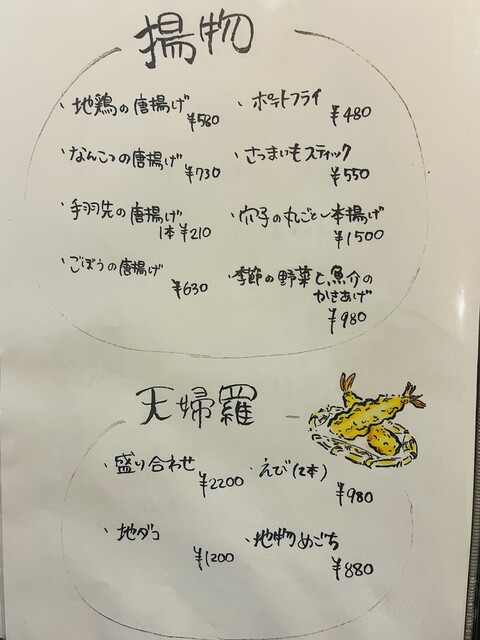 揚物
・地鶏の唐揚げ
¥580
・ポテトフライ
¥480
・なんこつの唐揚げ
¥730
・さつまいもスティック
¥550
・手羽先の唐揚げ
1本¥210
・穴子の丸ごと一本揚げ
¥1500
・ごぼうの唐揚げ
¥630
・季節の野菜と魚介の
かきあげ
¥980
天婦羅
・盛り合わせ
¥2200
・えび(2本)
¥980
・地ダコ
¥1200
・地物めごち
¥880